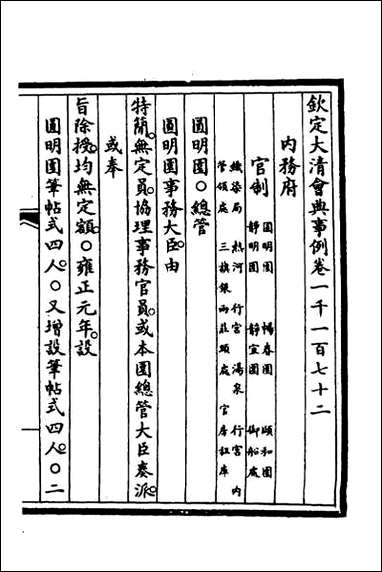 欽定大清會典事例卷一千一百七十二
內務府
官制
圓明園 暢春園 頤和園
靜明園 靜宜園 御船處
織染局 熱河 行宮 湯泉 行宮 內
管領處 三旗銀兩莊頭處 官房租庫
圓明園○總管
圓明園事務大臣由
特簡無定員協理事務官員或本園總管大臣奏派
或奉
旨除授均無定額○雍正元年設
圓明園筆帖式四人○又增設筆帖式四人○二